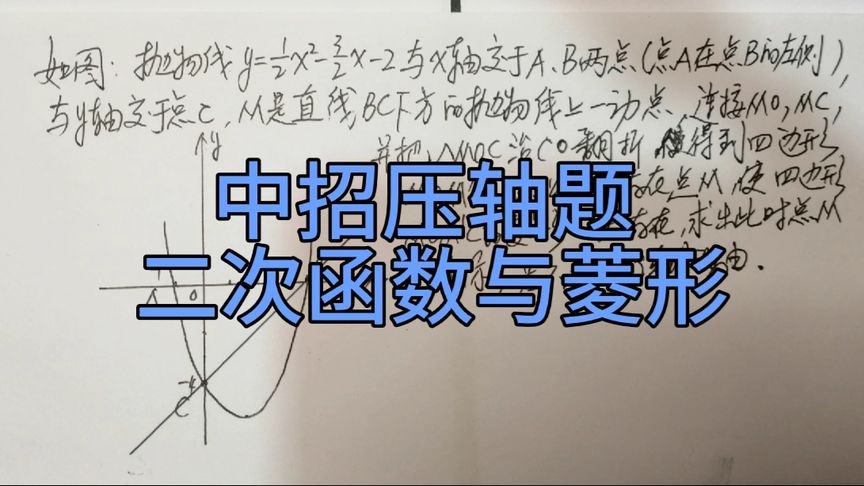 如图：抛物线 y=½x²-3/2x-2与x轴交于A、B两点（点A在点B的左侧），
与y轴交于点C，M是直线BC下方的抛物线上一动点，连接MO，MC，
并把△MOC沿CO翻折，得到四边形
在点M，使四边形
求出此时点M
中招压轴题
二次函数与菱形
y
A
O
C